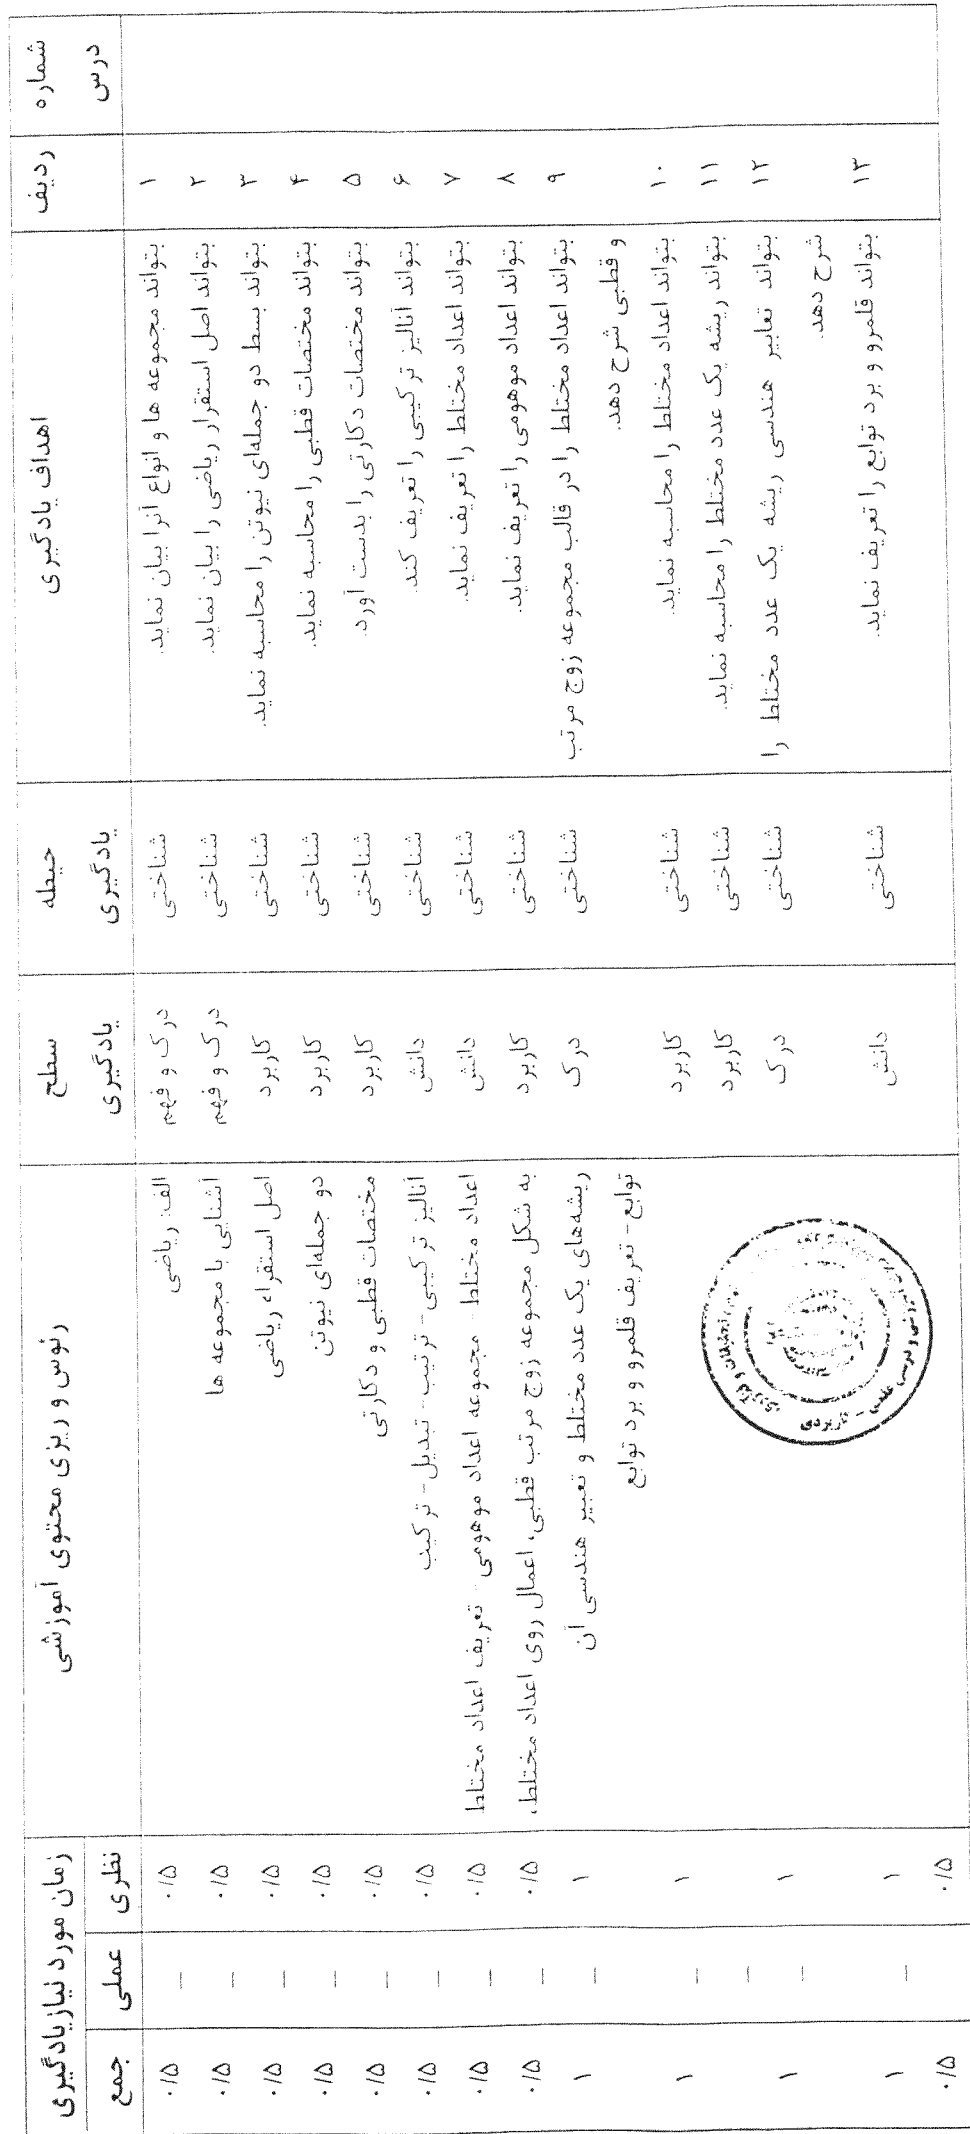 شماره درس
ردیف
اهداف یادگیری
حیطه یادگیری
سطح یادگیری
رئوس و ریزی محتوی آموزشی
زمان مورد نیاز یادگیری
نظری
عملی
جمع
۱ بتواند مجموعه ها و انواع آنرا بیان نماید. شناختی درک و فهم الف: ریاضی ۰/۵ – ۰/۵
۲ بتواند اصل استقرار ریاضی را بیان نماید. شناختی درک و فهم آشنایی با مجموعه ها ۰/۵ – ۰/۵
۳ بتواند بسط دو جمله‌ای نیوتن را محاسبه نماید. شناختی کاربرد اصل استقراء ریاضی ۰/۵ – ۰/۵
۴ بتواند مختصات قطبی را محاسبه نماید. شناختی کاربرد دو جمله‌ای نیوتن ۰/۵ – ۰/۵
۵ بتواند مختصات دکارتی را بدست آورد. شناختی کاربرد مختصات قطبی و دکارتی ۰/۵ – ۰/۵
۶ بتواند آنالیز ترکیبی را تعریف کند. شناختی دانش آنالیز ترکیبی - ترتیب - تبدیل - ترکیب ۰/۵ – ۰/۵
۷ بتواند اعداد مختلط را تعریف نماید. شناختی دانش اعداد مختلط - مجموعه اعداد موهومی - تعریف اعداد مختلط ۰/۵ – ۰/۵
۸ بتواند اعداد موهومی را تعریف نماید. شناختی کاربرد به شکل مجموعه زوج مرتب قطبی، اعمال روی اعداد مختلط، ۰/۵ – ۰/۵
۹ بتواند اعداد مختلط را در قالب مجموعه زوج مرتب شناختی درک ریشه‌های یک عدد مختلط و تعبیر هندسی آن ۱ – ۱
و قطبی شرح دهد. توابع - تعریف قلمرو و برد توابع
۱۰ بتواند اعداد مختلط را محاسبه نماید. شناختی کاربرد ۱ – ۱
۱۱ بتواند ریشه یک عدد مختلط را محاسبه نماید. شناختی کاربرد –
۱۲ بتواند تعابیر هندسی ریشه یک عدد مختلط را شناختی درک ۱ – ۱
شرح دهد.
۱۳ بتواند قلمرو و برد توابع را تعریف نماید. شناختی دانش ۱ – ۱
۰/۵ ۰/۵
علمی - کاربردی